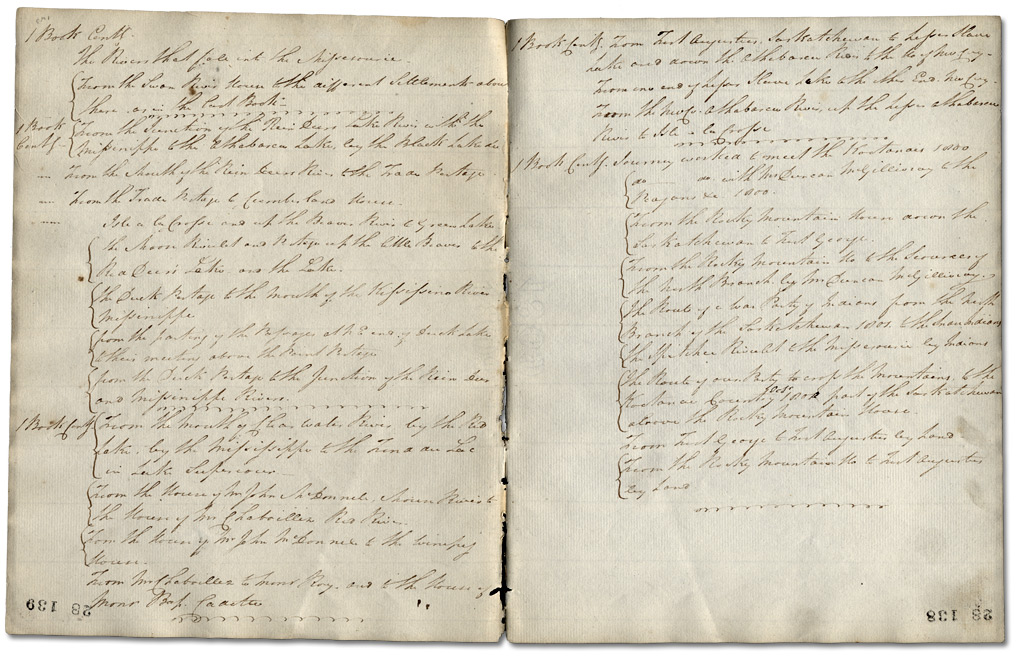 1 Book Cont.g
The Rivers that fall into the Missesourie.
From the Swan River House to the different Settlements above
there as in the last Book
1 Book From the Junction of the Rein Deers Lake River with the
Cont.g Missinippe to the Athabasca Lake, by the Black Lake &c
From the Mouth of the Rein Deers River to the Trade Portage
From the Trade Portage to Cumberland House.
Isle a la Crosse and up the Beaver River to Green Lake
the Moose Rivulet and Portage up the little Beaver to the
Red Deers Lake and the Lake.
the Duck Portage to the Mouth of the River
Missinippe
from the parting of the Passages at the E end of Duck Lake
to their meeting above the Portage
from the Duck Portage to the Junction of the Rein Deers
and Missinippe Rivers.
1 Book Cont.g From the Mouth of Clear water River, by the Red
Lake, by the Mississippie to the Fond du Lac
in Lake Superiour
From the House of Mr John McDonnel, Mouse River to
the House of Mr Chaboillez Red River.
From the House of Mr John McDonnel to the Winepeg
House.
From Mr Chaboillez to Monsr Roy and to the House of
Monsr Bap. Cadotte
28 139
1 Book Cont.g From Fort Augustus, Saskatchewan to Lesser Slave
Lake and down the Athabasca River to the
From one end of Lesser Slave Lake to the other End.
From the Athabasca River, up the Lesser Athabasca
River to Isle a la Crosse
1 Book Cont.g Journey worked to meet the Kootanaes 1800
do do with Mr Duncan McGillivray to the
Pagans &c. 1800.
From the Rocky Mountain House down the
Saskatchewan to Fort George.
From the Rocky Mountain Ho to the Sources of
the North Branch, by Mr Duncan McGillivray
the Route of a War Party of Indians from the North
Branch of the Saskatchewan 1801. to the Indians
the Rivulet to the Missesourie by Indians
the Route of our Party to cross the Mountains, to the
Kootanae Country part of the Saskatchewan
above the Rocky Mountain House
From Fort George to Fort Augustus by Land
From the Rocky Mountain Ho to Fort Augustus
by Land
28 138